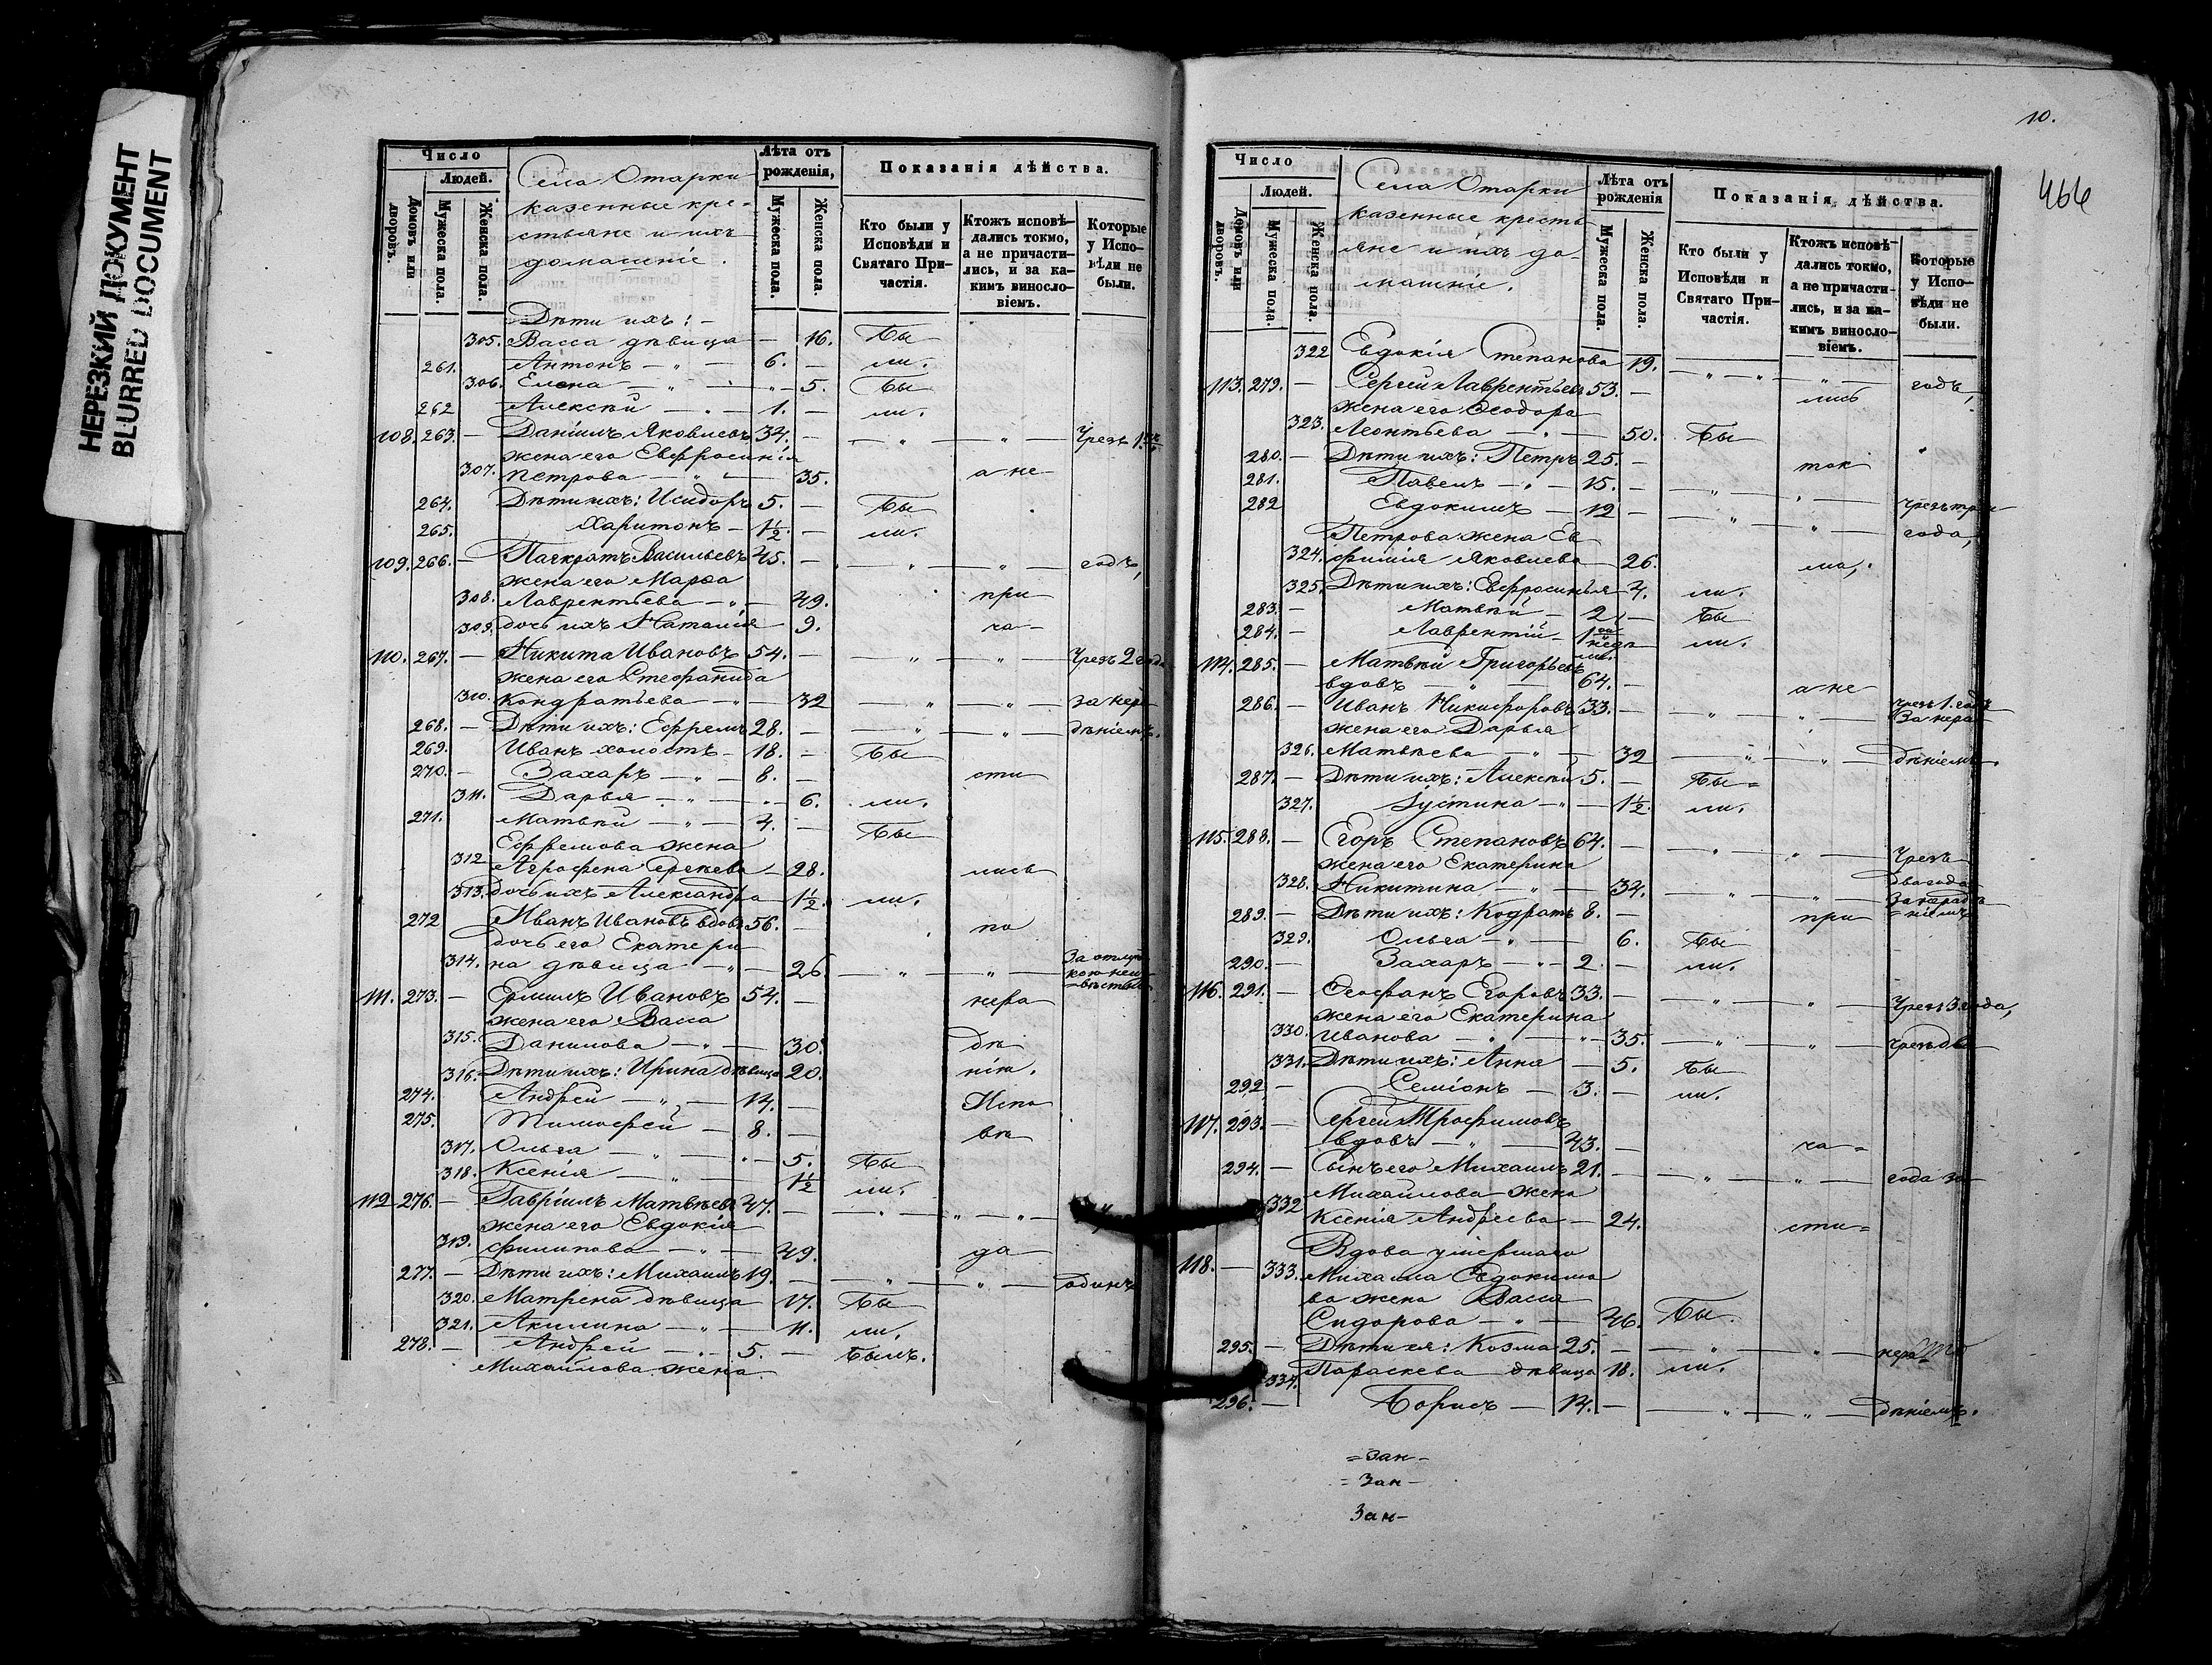 НЕРЕЗКИЙ ДОКУМЕНТ
BLURRED DOCUMENT
Число
Людей.
Домовъ или дворовъ.
Мужеска пола.
Женска пола.
Села Отарки
казенные кре-
стьяне и ихъ
домашніе.
Лѣта отъ рожденія,
Мужеска пола.
Женска пола.
Показанія дѣйства.
Кто были у Исповѣди и Святаго Причастія.
Ктожъ исповѣ-дались токмо, а не причасти-лись, и за ка-кимъ винослo-віемъ.
Которые у Испо-вѣди не были.
Дѣти ихъ: -
305. Васса дѣвица — 16. Бы
261. Антонъ — " — 6. — ли.
306. Елена — " — " — 5. Бы
262 Алексѣй — " — 1. — ли.
108. 263. — Даніилъ Яковлевъ 34. — " — " — Чрезъ 1.
жена его Евфросинія
307. Петрова — " — 35. а не
264. Дѣти ихъ: Исидоръ 5. — Бы
265. Харитонъ — 1½. — ли.
109. 266. — Панкратъ Васильевъ 45. — " — " — годъ,
жена его Марѳа
308. Лаврентьева — " — 49. при
309. дочь ихъ Наталія — 9. ча-
110. 267. — Никита Ивановъ 54. — " — " — Чрезъ 2 года
жена его Стефанида
310. Кондратьева — " — 32 — " — " — за нера
268. — Дѣти ихъ: Ефремъ 28. — " — " — дѣніемъ.
269. Иванъ холостъ — 18. — Бы
270. — Захаръ — " — 8. — сти
311. Дарья — " — " — 6. ли.
271. Матвѣй — " — 4. — Бы
Ефремова жена
312 Агрофена Сергѣева — 28. лись
313. дочь ихъ Александра — 1½. ли.
272 Иванъ Ивановъ вдовъ 56. — по
дочь его Екатери
314. на дѣвица — " — 26. — " — " — За отлуч
111. 273. — Ермилъ Ивановъ 54. — нера
жена его Васса
315. Данилова — " — 30. дѣ
316. Дѣти ихъ: Ирина дѣвица 20. нію.
274. Андрей — " — 14. — Испо
275. Тимофей — 8. — вѣ
317. Ольга — " — " — 5. Бы
318. Ксенія — " — 1½ ли.
112 276. — Гавріилъ Матвѣевъ 47. — " — " — "
жена его Евдокія
319. Филипова — " — 49. да
277. — Дѣти ихъ: Михаилъ 19. — " — " — одинъ
320. Матрена дѣвица 17. Бы
321. Акилина — " — 11. ли.
278. — Андрей — " — 5. — Былъ.
Михайлова жена
10.
466
Число
Людей.
Домовъ или дворовъ.
Мужеска пола.
Женска пола.
Села Отарки
казенные кресть
яне и ихъ до-
машніе.
Лѣта отъ рожденія
Мужеска пола.
Женска пола.
Показанія дѣйства.
Кто были у Исповѣди и Святаго При-частія.
Ктожъ исповѣ-дались токмо, а не причасти-лись, и за ка-кимъ винослo-віемъ.
Которые у Испо-вѣди не были.
322 Евдокія Степанова 19. — " — " — " — годъ,
113. 279. — Сергей Лаврентьевъ 53. — лись
жена его Ѳеодора
323. Леонтьева — " — 50. Бы
280. — Дѣти ихъ: Петръ 25. — ток
281. Павелъ — " — 15. — " — " — Чрезъ три
282 Евдокимъ — 12 — " — " — года,
Петрова жена Ев
324. фимія Яковлева — 26. мо,
325. Дѣти ихъ: Евфросинья 4. ли.
283. — Матвѣй — 2 — Бы
284. — Лаврентій — 1 недѣли. ли.
114. 285. — Матвѣй Григорьевъ
вдовъ — " — 64. — а не
286. — Иванъ Никифоровъ 33. — " — " — чрезъ 1. годъ За нера
жена его Дарья
326. Матвѣева — " — 32 — " — " — дѣніемъ.
287. — Дѣти ихъ: Алексѣй 5. — Бы=
327. Іустина — " — 1½. ли.
115. 288. — Егоръ Степановъ 64. — " — " — Чрезъ
жена его Екатерина два года
328. Никитина — " — 34. — " — " — за нерадѣ
289. — Дѣти ихъ: Кодратъ 8. — при =ніемъ
329. Ольга — " — 6. Бы
290. — Захаръ — " — 2. — ли.
116. 291. — Ѳеофанъ Егоровъ 33. — " — " — Чрезъ 3. года,
жена его Екатерина
330. Иванова — " — " — 35. — " — " — чрезъ два
331. Дѣти ихъ: Анна — 5. Бы
292 — Семіонъ — 3. — ли.
117. 293. — Сергей Трофимовъ
вдовъ — " — 43. — ча=
294. — Сынъ его Михаилъ 21. — " — " — года за
Михайлова жена
332 Ксенія Андреева — 24. сти=
Вдова умершаго
118. — 333. Михаила Евдокимо
ва жена Васса
Сидорова — " — 46. Бы.
295. — Дѣти ея: Козма 25. — " — " — нера
334. Параскева дѣвица 18. ли.
296. — Борисъ — 14. — " — " — дѣніемъ.
=Зан-
-Зан-
Зан-